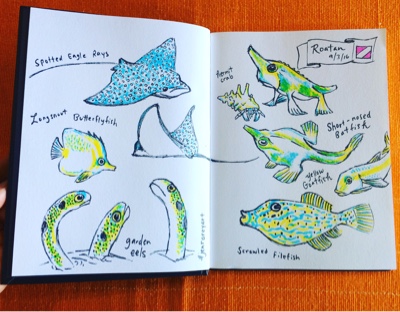 Spotted Eagle Rays
Longsnout Butterflyfish
garden
eels
Roatan
9/3/16
hermit
crab
Short-nosed
Batfish
yellow
Goatfish
Scrawled Filefish